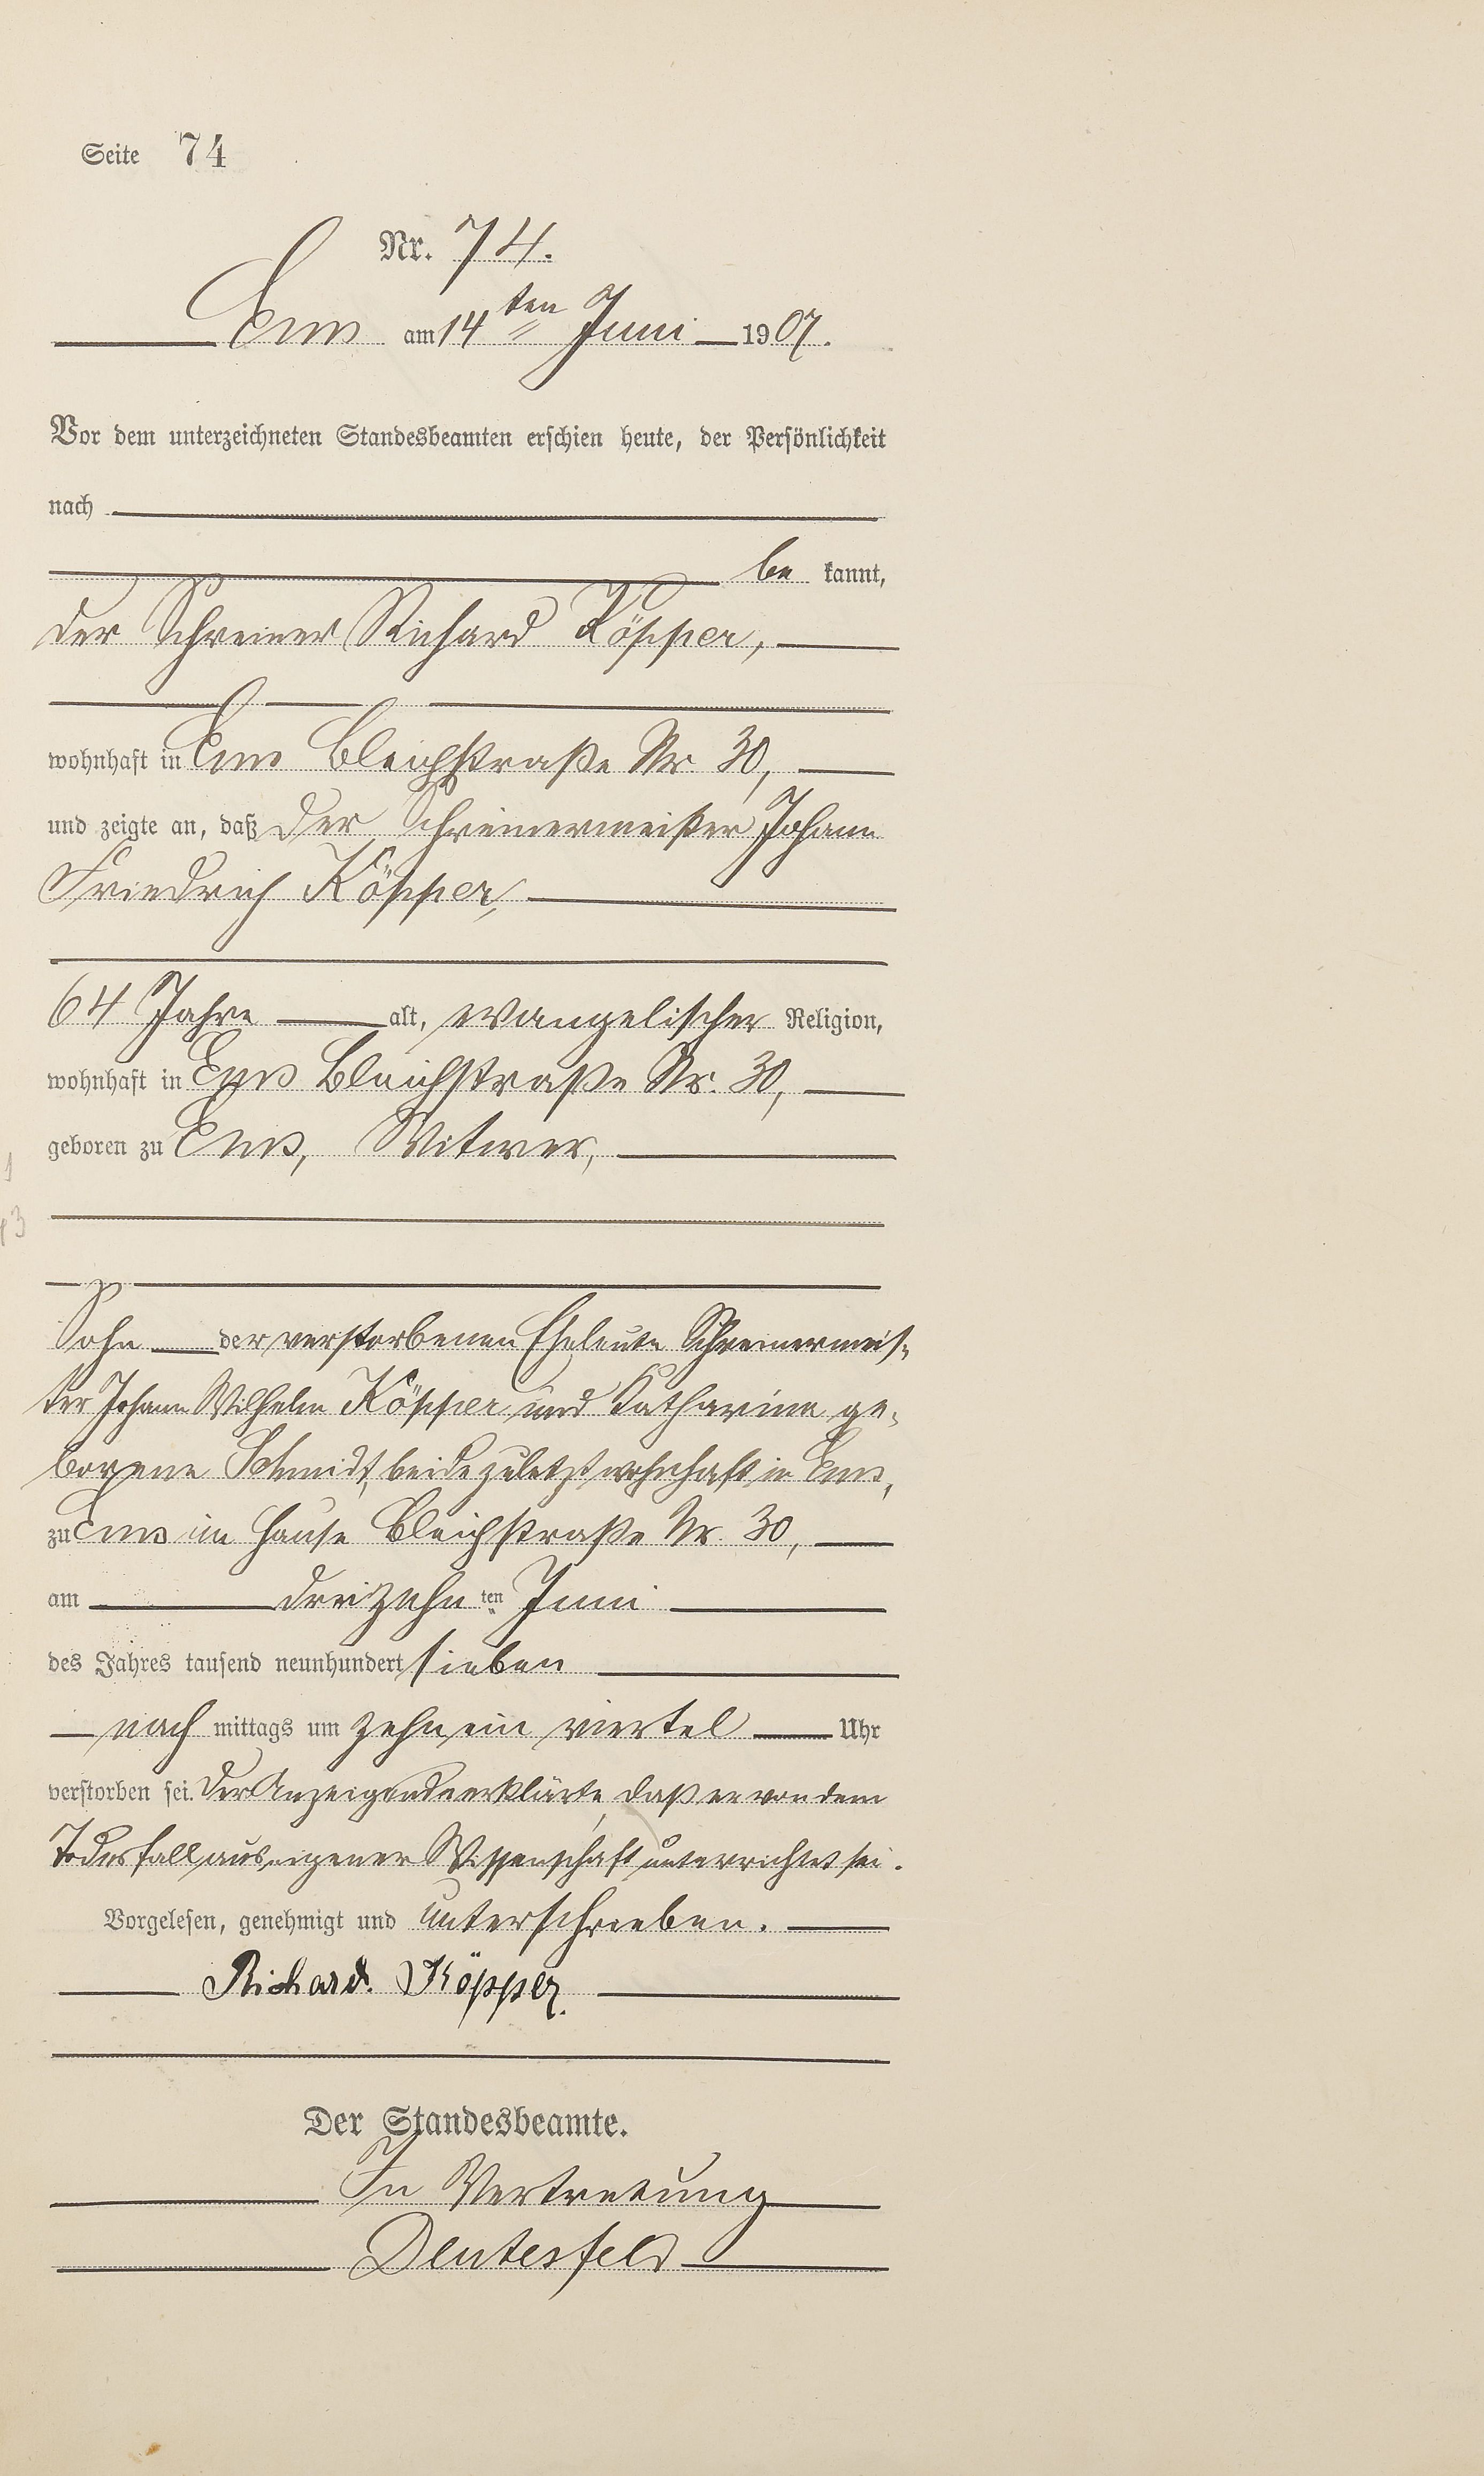 Seite 74
Nr. 74.
Ems am 14ten Juni 1907.
Vor dem unterzeichneten Standesbeamten erschien heute, der Persönlichkeit
nach
be kannt,
der Schreiner Richard Köpper,
wohnhaft in Ems Bleichstraße Nr. 30,
und zeigte an, daß der Schreinermeister Johann
Friedrich Köpper,
64 Jahre alt, evangelischer Religion,
wohnhaft in Ems Bleichstraße Nr. 30,
geboren zu Ems, Witwer,
Sohn der verstorbenen Eheleute Schreinermeis-
ter Johann Wilhelm Köpper und Katharina ge-
borene Schmidt, beide zuletzt wohnhaft in Ems,
zu Ems im Hause Bleichstraße Nr. 30,
am dreizehn ten Juni
des Jahres tausend neunhundert sieben
nach mittags um zehn ein viertel Uhr
verstorben sei. Der Anzeigende erklärte, daß er von dem
Todesfall aus eigener Wissenschaft unterrichtet sei.
Vorgelesen, genehmigt und unterschrieben.
Richard. Köpper.
Der Standesbeamte.
In Vertretung